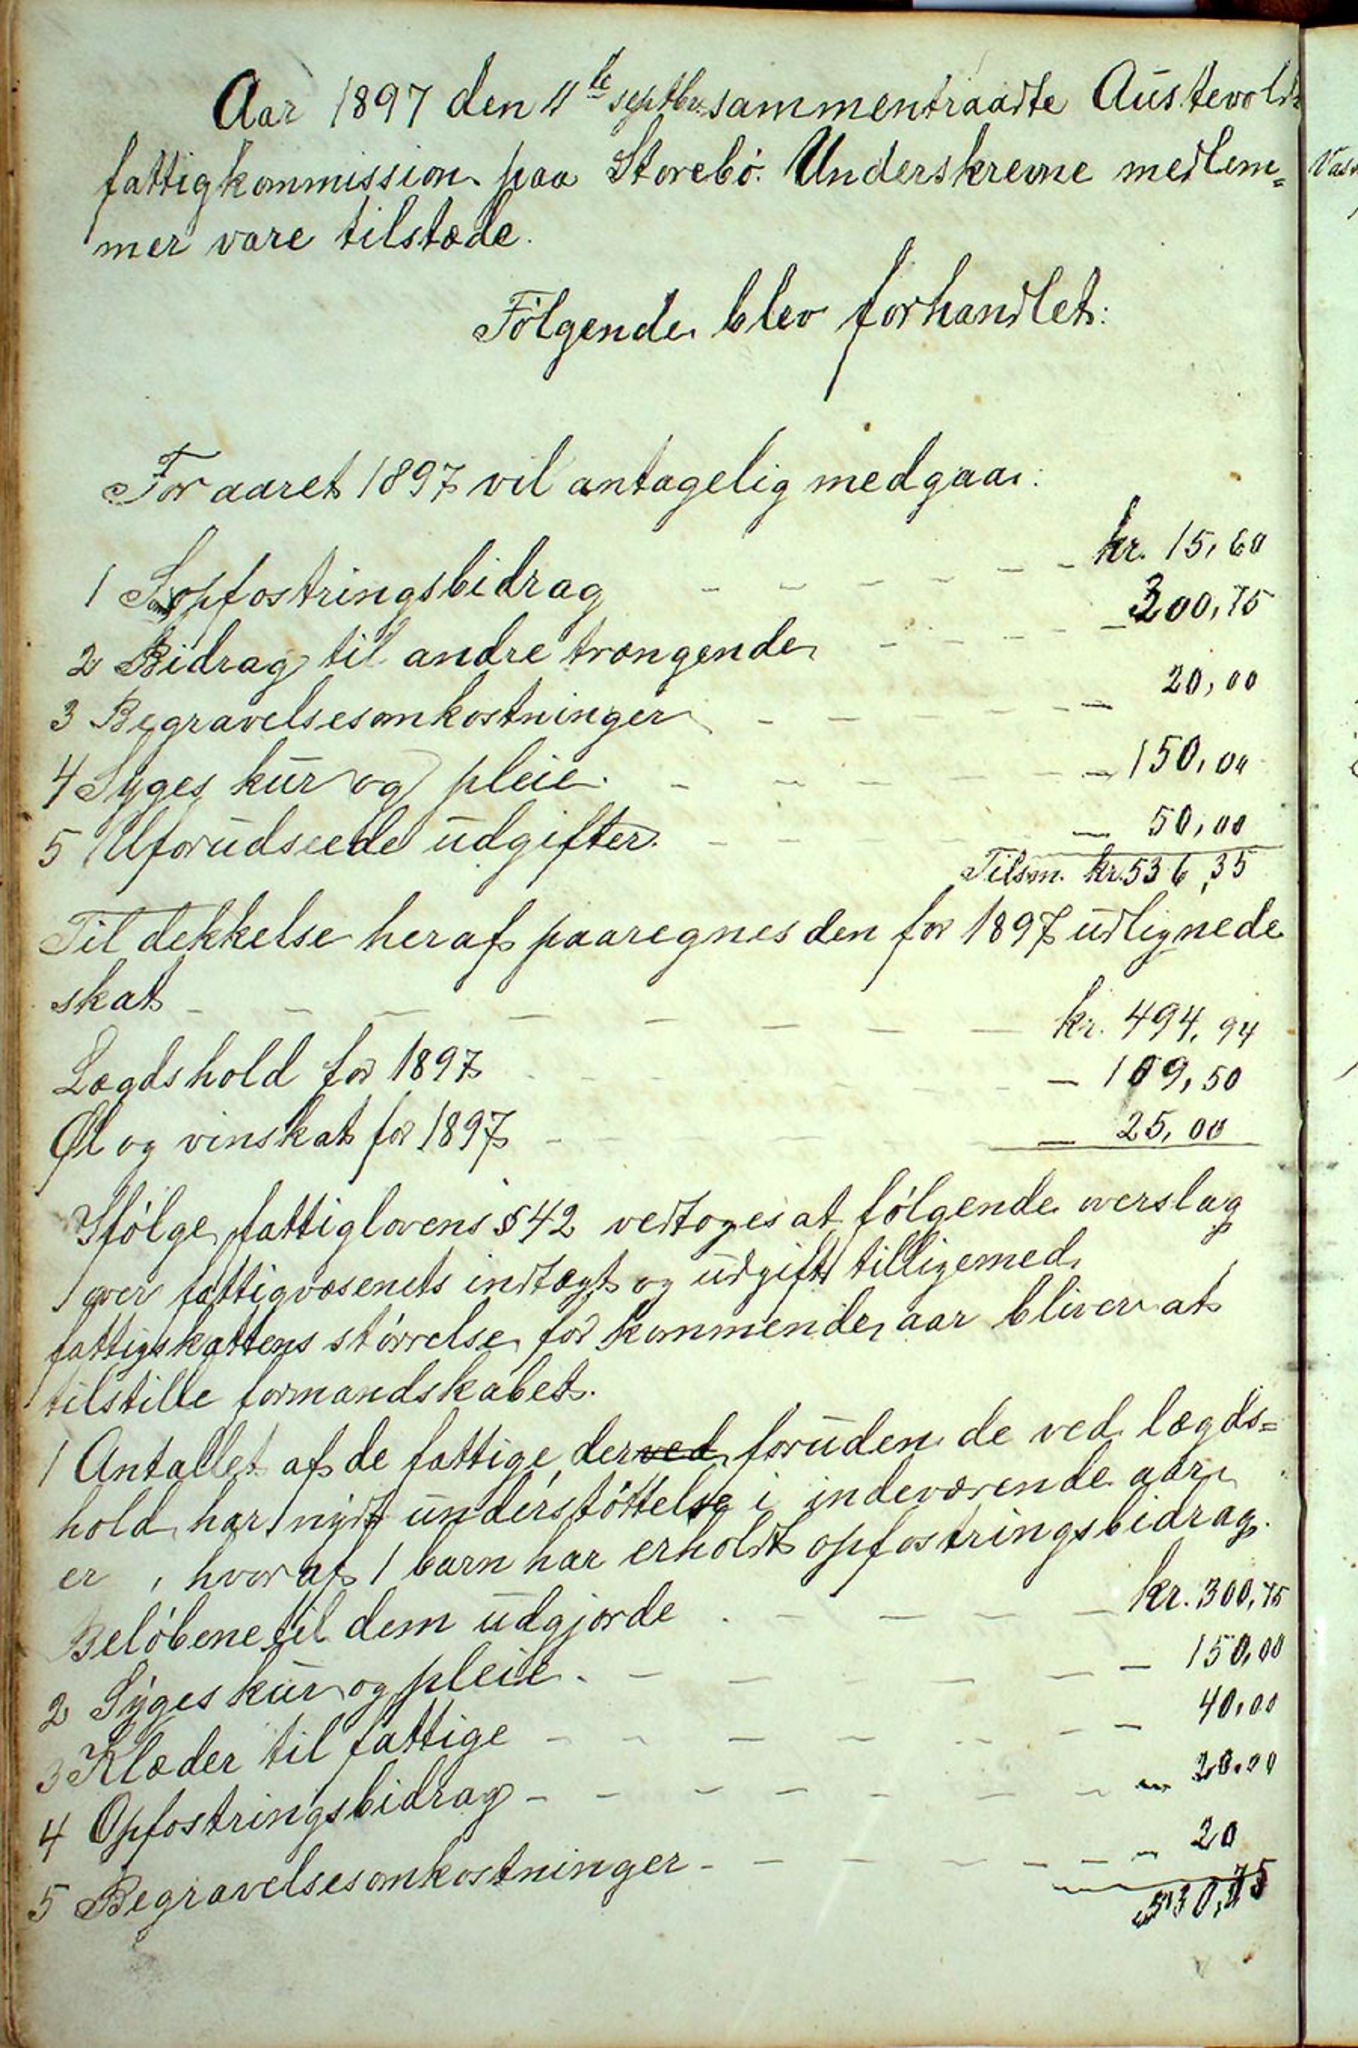 Aar 1897 den 4de septbr. sammentraadte Austevolds
fattigkommission paa Storebø. Underskrevne medlem=
mer vare tilstæde.
Følgende blev forhandlet:
For aaret 1897 vil antagelig medgaa:
1 opfostringsbidrag - - - - - - kr. 15,60
2 Bidrag til andre trængende - - - - 300,75
3 Begravelsesomkostninger - - - - - - 20,00
4 Syges kur og pleie. - - - - - - 150,00
5 Uforudseede udgifter. - - - - 50,00
Tilsm. kr. 536,35
Til dekkelse heraf paaregnes den for 1897 udlignede
skat - - - - - - - - kr. 494,94
Lægdshold for 1897 - - - - - 109,50
Øl og vinskat for 1897 - - - - - 25,00
Ifølge fattiglovens § 42 vedtoges at følgende overslag
over fattigvæsenets indtægt og udgift tilligemed
fattigskattens størrelse for kommende aar bliver at
tilstille formandskabet.
1 Antallet af de fattige, derved foruden de ved lægds=
hold, har nydt understøttelse i indeværende aar
er , hvoraf 1 barn har erholdt opfostringsbidrag.
Beløbene til dem udgjorde - - - - - kr. 300,75
2 Syges kur og pleie. - - - - - - 150,00
3 Klæder til fattige - - - - - - 40,00
4 Opfostringsbidrag - - - - - - - - 20,00
5 Begravelsesomkostninger - - - - - - - 20
530,75